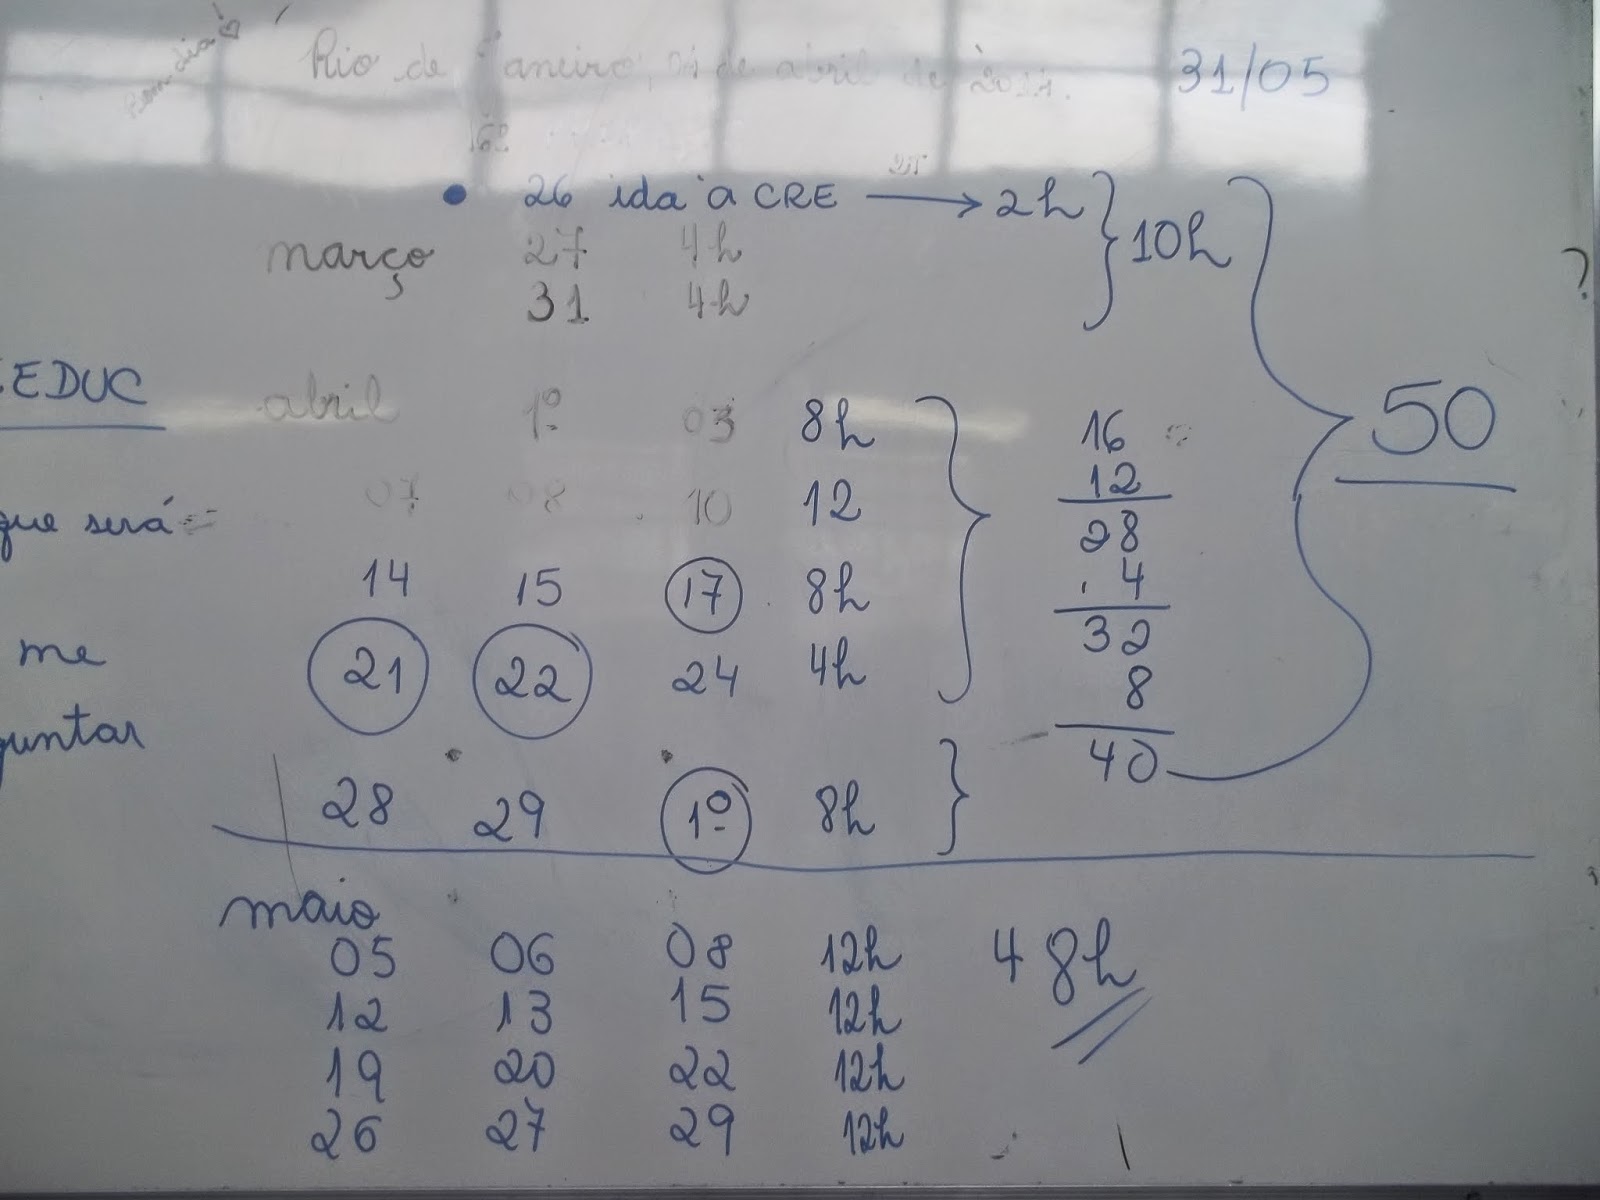 Bom dia
Rio de Janeiro, 01 de abril de 2014.
31/05
• 26 ida à CRE → 2h
março 27 4h
10h
31 4h
EDUC
abril 1º 03 8h
07 08 10 12
que será
14 15 17 8h
me
21 22 24 4h
guntar
28 29 1º 8h
16
12
28
4
32
8
40
50
?
maio
05 06 08 12h
48h
12 13 15 12h
19 20 22 12h
26 27 29 12h